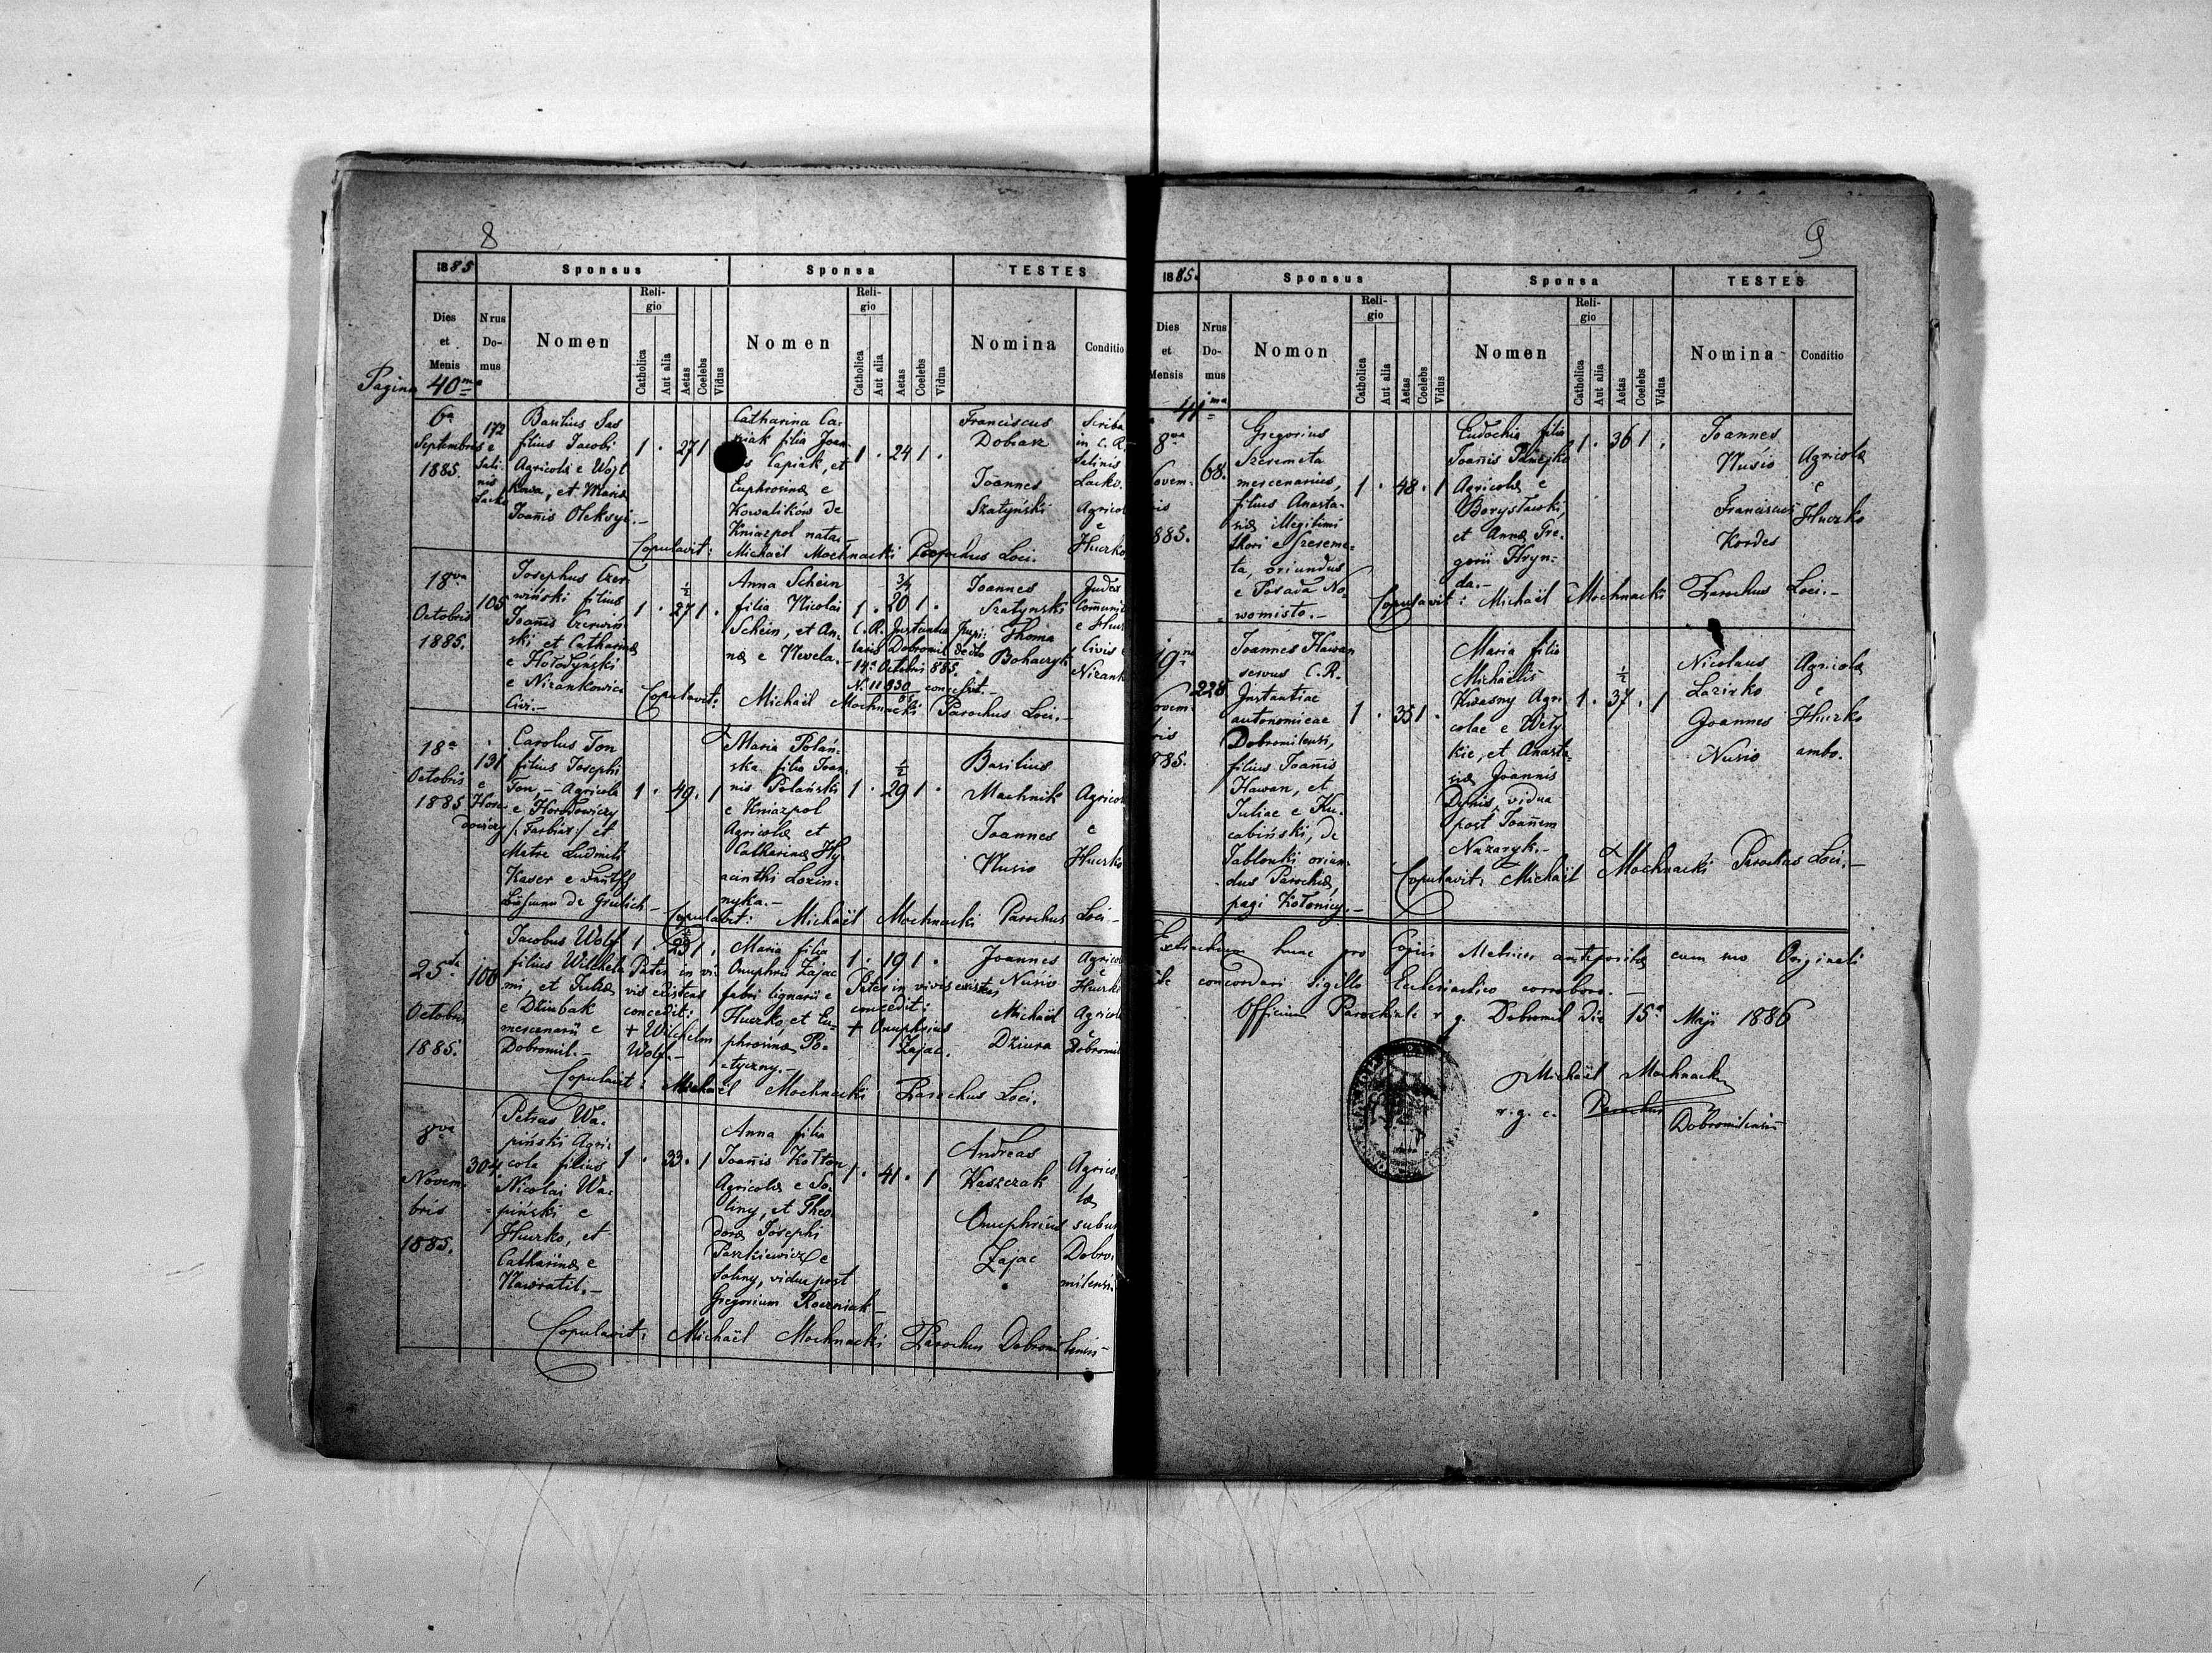 8
1885 Sponsus Sponsa TESTES
Dies et Mensis Nrus Domus Nomen Religio Catholica Aut alia Aetas Coelebs Vidus Nomen Religio Catholica Aut alia Aetas Coelebs Vidua Nomina Conditio
Pagina 40ma
6a
Septembris
1885.
172
e
Sali-
nis
Lacko
Basilius Sas
filius Jacobi
Agricolæ e Wojt
kowa, et Mariæ
Joannis Oleksyi.–
1 . 27 1
Catharina Ca-
filia Joan-
Capiak, et
Euphrosinæ e
Kowalików de
Kniazpol nata.–
1 . 24 1 .
Franciscus
Dobrar
Joannes
Szatyński
Scriba
in C. R.
Salinis
Lacko.
Agricol
e
Huczko
Copulavit: Michaël Mochnacki Parochus Loci.
18va
Octobris
1885.
105
Josephus Czer
wiński filius
Joanis Czerwiń
ski et Catharinæ
e Hołodyński
e Nizankowice
Civi.–
1 . 27 1/2 1 .
Anna Schein
filia Nicolai
Schein, et An-
næ e Nevela.–
1 . 20 3/4 1 .
C. R. Instantia Pupi-
laris Dobromil dedto
14a Octobri 885.
N. 11830
Joannes
Szatynski
Thoma
Bohaczyk
Judex
Comuni
e Hucz
Civis e
Nizank
Copulavit: Michaël Mochnacki Parochus Loci.–
18a
Octobris
1885
131
e
Horo
dowiczy
Carolus Ton
filius Josephi
Ton,– Agricola
e Horodowiczy
et
Matre Ludmila
Kaser e
de Grulich –
1 . 49 . 1
Maria Polań-
ska filia Joan-
nis Polański
e Kniazpol
Agricolæ et
Catharinæ Hy
acinthi Lozin-
nyka.–
1 . 29 1/2 1 .
Basilius
Machnik
Joannes
Nusio
Agricol
e
Huczko
Copulavit: Michaël Mochnacki Parochus Loci –
25ta
Octobris
1885.
106
Jacobus Wolf
filius Wilhel-
mi, et Juliæ
e Dziubak
mercenarii e
Dobromil.–
1 . 23 1 .
Pater in vi-
vis existens
concedit:
+ Wilchelm
Wolf.–
Maria filia
Onuphrii Zajac
fabri lignarii e
Huczko, et Eu-
phrosinæ Po-
tyczny.–
1 . 19 1 .
Pater in vivis existens
concedit:
+ Onuphrius
Zajac.
Joannes
Nusio
Michaël
Dziura
Agricol
e
Huczko
Agricol
e
Dobromil
Copulavit: Michaël Mochnacki Parochus Loci.
8va
Novem-
bris
1885.
304
Petrus Wa-
piński Agri-
cola filius
Nicolai Wa-
piński e
Huczko, et
Catharinæ e
Nawratil.–
1 . 33 . 1
Anna filia
Joanis Kołton
Agricolæ e So-
liny, et Theo-
doræ Josephi
Paszkiewicz e
Soliny, vidua post
Gregorium Roczniak –
1 . 41 . 1
Andreas
Kaszczak
Onuphrius
Zajac
Agrico-
læ
subur
Dobro-
milensi.
Copulavit: Michaël Mochnacki Parochus Dobromilensis –
9
1885. Sponsus Sponsa TESTES
Dies et Mensis Nrus Domus Nomon Religio Catholica Aut alia Aetas Coelebs Vidus Nomen Religio Catholica Aut alia Aetas Coelebs Vidua Nomina Conditio
41ma
8va
Novem-
ris
885.
68.
Gregorius
Szeremeta
mercenarius,
filius Anasta-
siæ illegitimi
thori e Szereme-
ta, oriundus
e Posada No-
womisto.–
1 . 48 . 1
Eudochia filia
Joannis Pańejko
Agricolæ e
Borysławki,
et Annæ Gre-
gorii Hryn-
da.–
1 . 36 1 .
Joannes
Nusio
Franciscus
Kordes
Agricolæ
e
Huczko
Copulavit: Michaël Mochnacki Parochus Loci.–
19na
ovem-
ris
885.
228
Joannes Hawan
servus C. R.
Instantiae
autonomicae
Dobromilensi,
filius Joanis
Hawan, et
Juliae e Ku-
cabiński, de
Jablonki oriun-
dus Parochiæ,
pagi Kołonicy.–
1 . 35 1 .
Maria filia
Michaelis
Kwasny Agri-
colae e Wety-
kie, et Anasta-
siæ Joannis
Dynis, vidua
post Joanem
Nazaryk.–
1 . 37 1/2 . 1
Nicolaus
Lazirko
Joannes
Nusio
Agricolæ
e
Huczko
ambo.
Copulavit: Michaël Mochnacki Parochus Loci.–
Extractum hunc pro Copiis Matrices antepositæ cum suo Originali
concordari Sigillo Ecclesiastico corroboro.
Officium Parochiale r. g. Dobromil die 15a Maji 1886
Michaël Mochnacki
r. g. c. Parochus
Dobromilensis